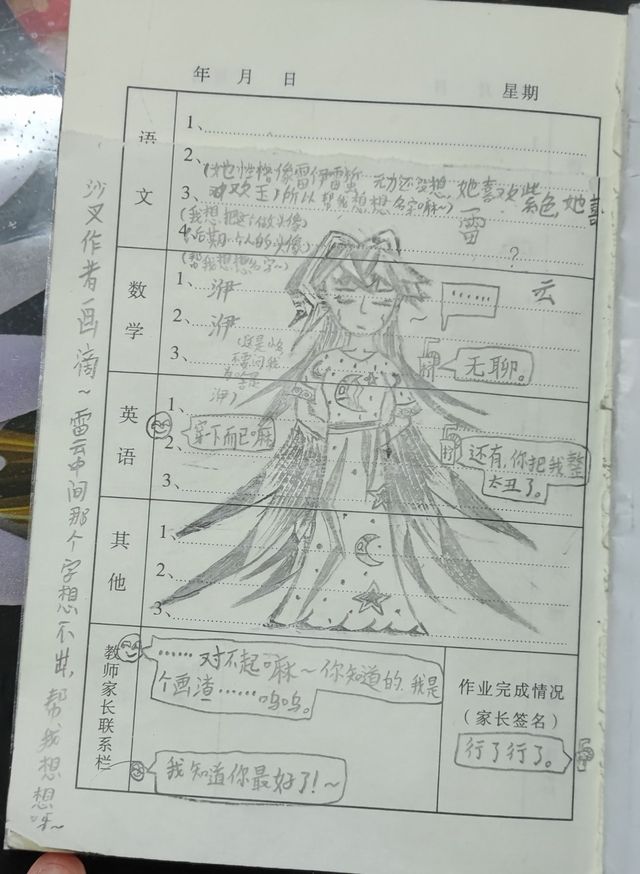 年 月 日 星期
语文
1、
2、
(她性格像雷伊雷蜇
3、
所以帮我想想名字嘛~)
她喜欢紫色,她喜
(我想把这个做头像)
4
雷
?
云
(帮我想想名字~)
数学
1、
2、
3、
洢
洢
……
无聊。
英语
1、
2、
3、
穿下而已嘛
还有,你把我整
太丑了。
其他
1、
2、
3、
教师家长联系栏
……对不起嘛~你知道的.我是
个画渣……呜呜。
我知道你最好了!~
作业完成情况
(家长签名)
行了行了。
沙叉作者画滴~雷云中间那个字想不出,帮我想想呀~